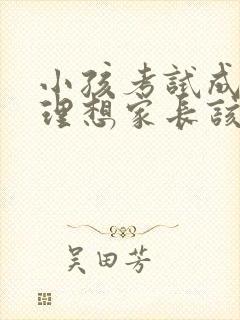 小孩考試成
理想家長該
吴田芳